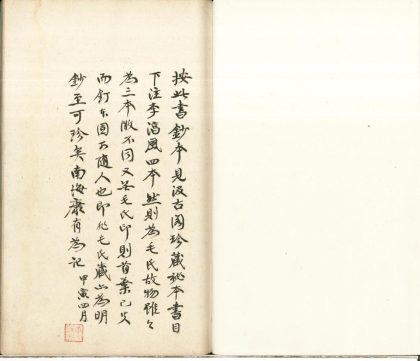 按此書鈔本見汲古閣珍藏秘本書目
下注李淳風四本然則為毛氏故物雖
為三本微不同又無毛氏印則首葉已失
而釘本固可隨人也即非毛氏藏亦為明
鈔至可珍矣南海康有為記 甲寅四月